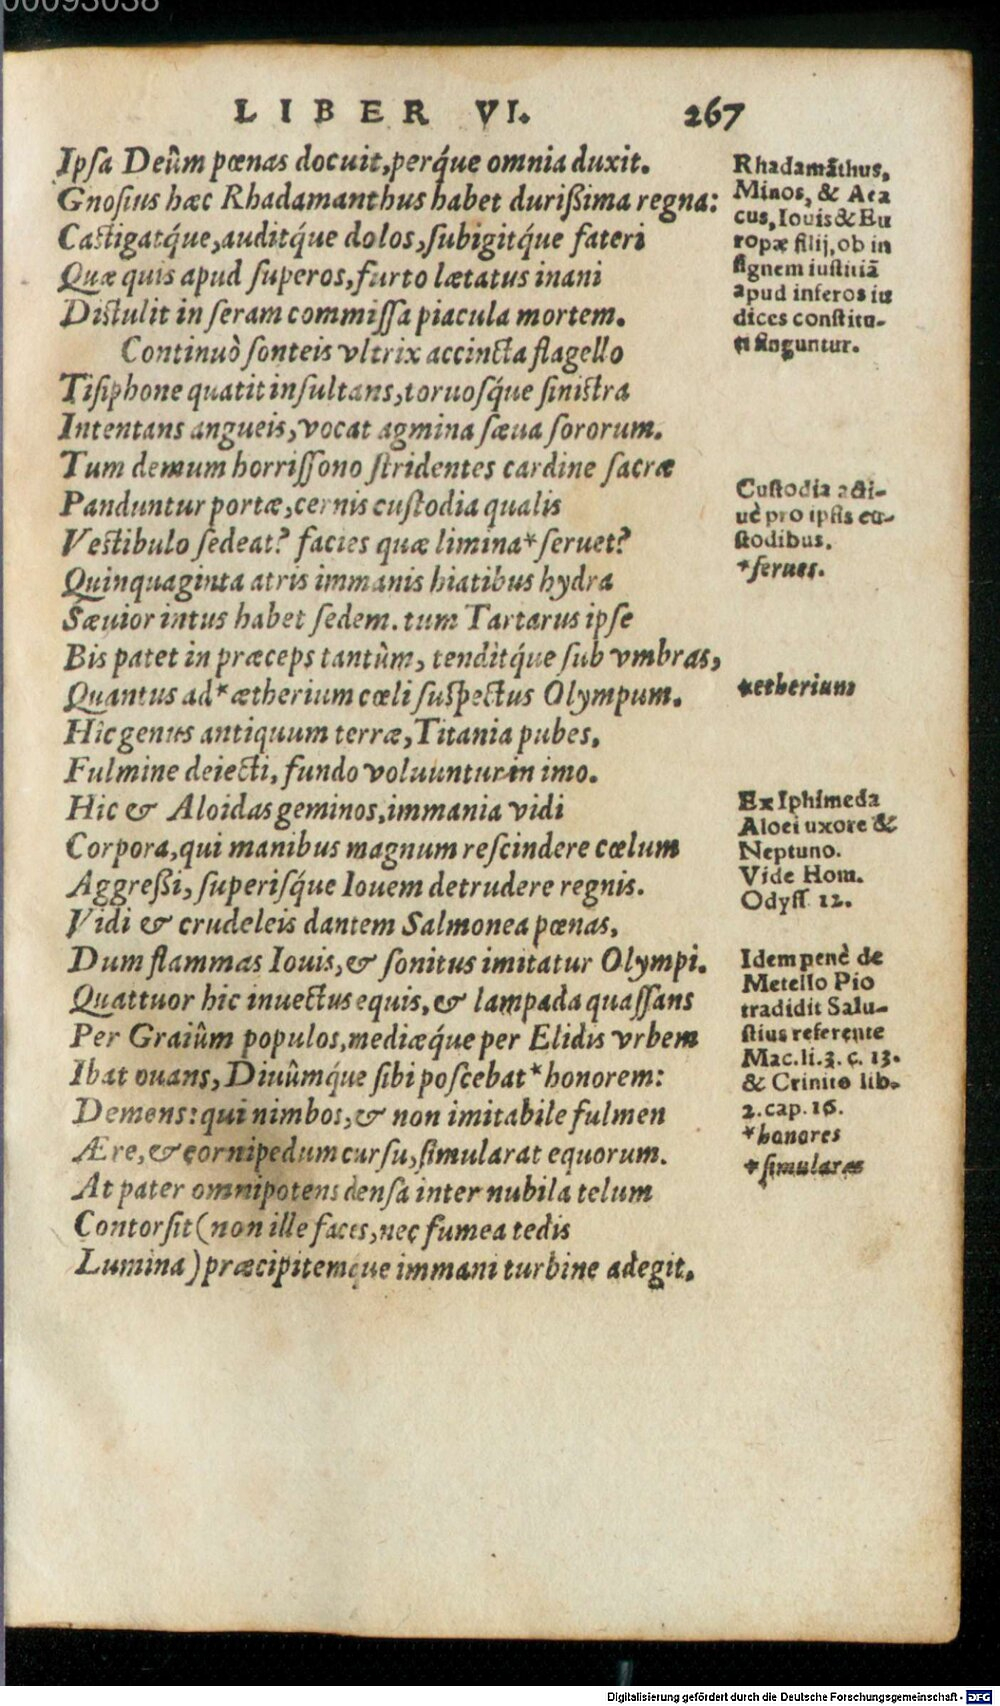 00093038
LIBER VI. 267
Ipſa Deûm pœnas docuit, perq́ue omnia duxit.
Gnoſius hæc Rhadamanthus habet durißima regna:
Caſtigatq́ue, auditq́ue dolos, ſubigitq́ue fateri
Quæ quis apud ſuperos, furto lætatus inani
Diſtulit in ſeram commiſſa piacula mortem.
Continuò ſonteis vltrix accincta flagello
Tiſiphone quatit inſultans, toruoſq́ue ſiniſtra
Intentans angueis, vocat agmina ſæua ſororum.
Tum demum horriſſono ſtridentes cardine ſacræ
Panduntur portæ, cernis cuſtodia qualis
Veſtibulo ſedeat? facies quæ limina*ſeruet?
Quinquaginta atris immanis hiatibus hydra
Sæuior intus habet ſedem. tum Tartarus ipſe
Bis patet in præceps tantùm, tenditq́ue ſub vmbras,
Quantus ad*ætherium cœli ſuſpectus Olympum.
Hic genus antiquum terræ, Titania pubes,
Fulmine deiecti, fundo voluuntur in imo.
Hic & Aloidas geminos, immania vidi
Corpora, qui manibus magnum reſcindere cœlum
Aggreßi, ſuperiſq́ue Iouem detrudere regnis.
Vidi & crudeleis dantem Salmonea pœnas,
Dum flammas Iouis, & ſonitus imitatur Olympi.
Quattuor hic inuectus equis, & lampada quaſſans
Per Graiûm populos, mediæq́ue per Elidis vrbem
Ibat ouans, Diuûmq́ue ſibi poſcebat*honorem:
Demens: qui nimbos, & non imitabile fulmen
Ære, & cornipedum curſu, ſimularat equorum.
At pater omnipotens denſa inter nubila telum
Contorſit (non ille faces, nec fumea tedis
Lumina) præcipitemque immani turbine adegit.
Rhadamãthus,
Minos, & Aea
cus, Iouis & Eu
ropæ filij, ob in
ſignem iuſtitiã
apud inferos iu
dices conſtitu-
ti finguntur.
Cuſtodia acti-
uè pro ipſis cu-
ſtodibus.
*ſeruet.
*etherium
Ex Iphimeda
Aloei uxore &
Neptuno.
Vide Hom.
Odyſſ. 12.
Idem penè de
Metello Pio
tradidit Salu-
ſtius referente
Mac. li. 3. c. 13.
& Crinito lib.
2. cap. 16.
*honores
*ſimularas
Digitalisierung gefördert durch die Deutsche Forschungsgemeinschaft - DFG